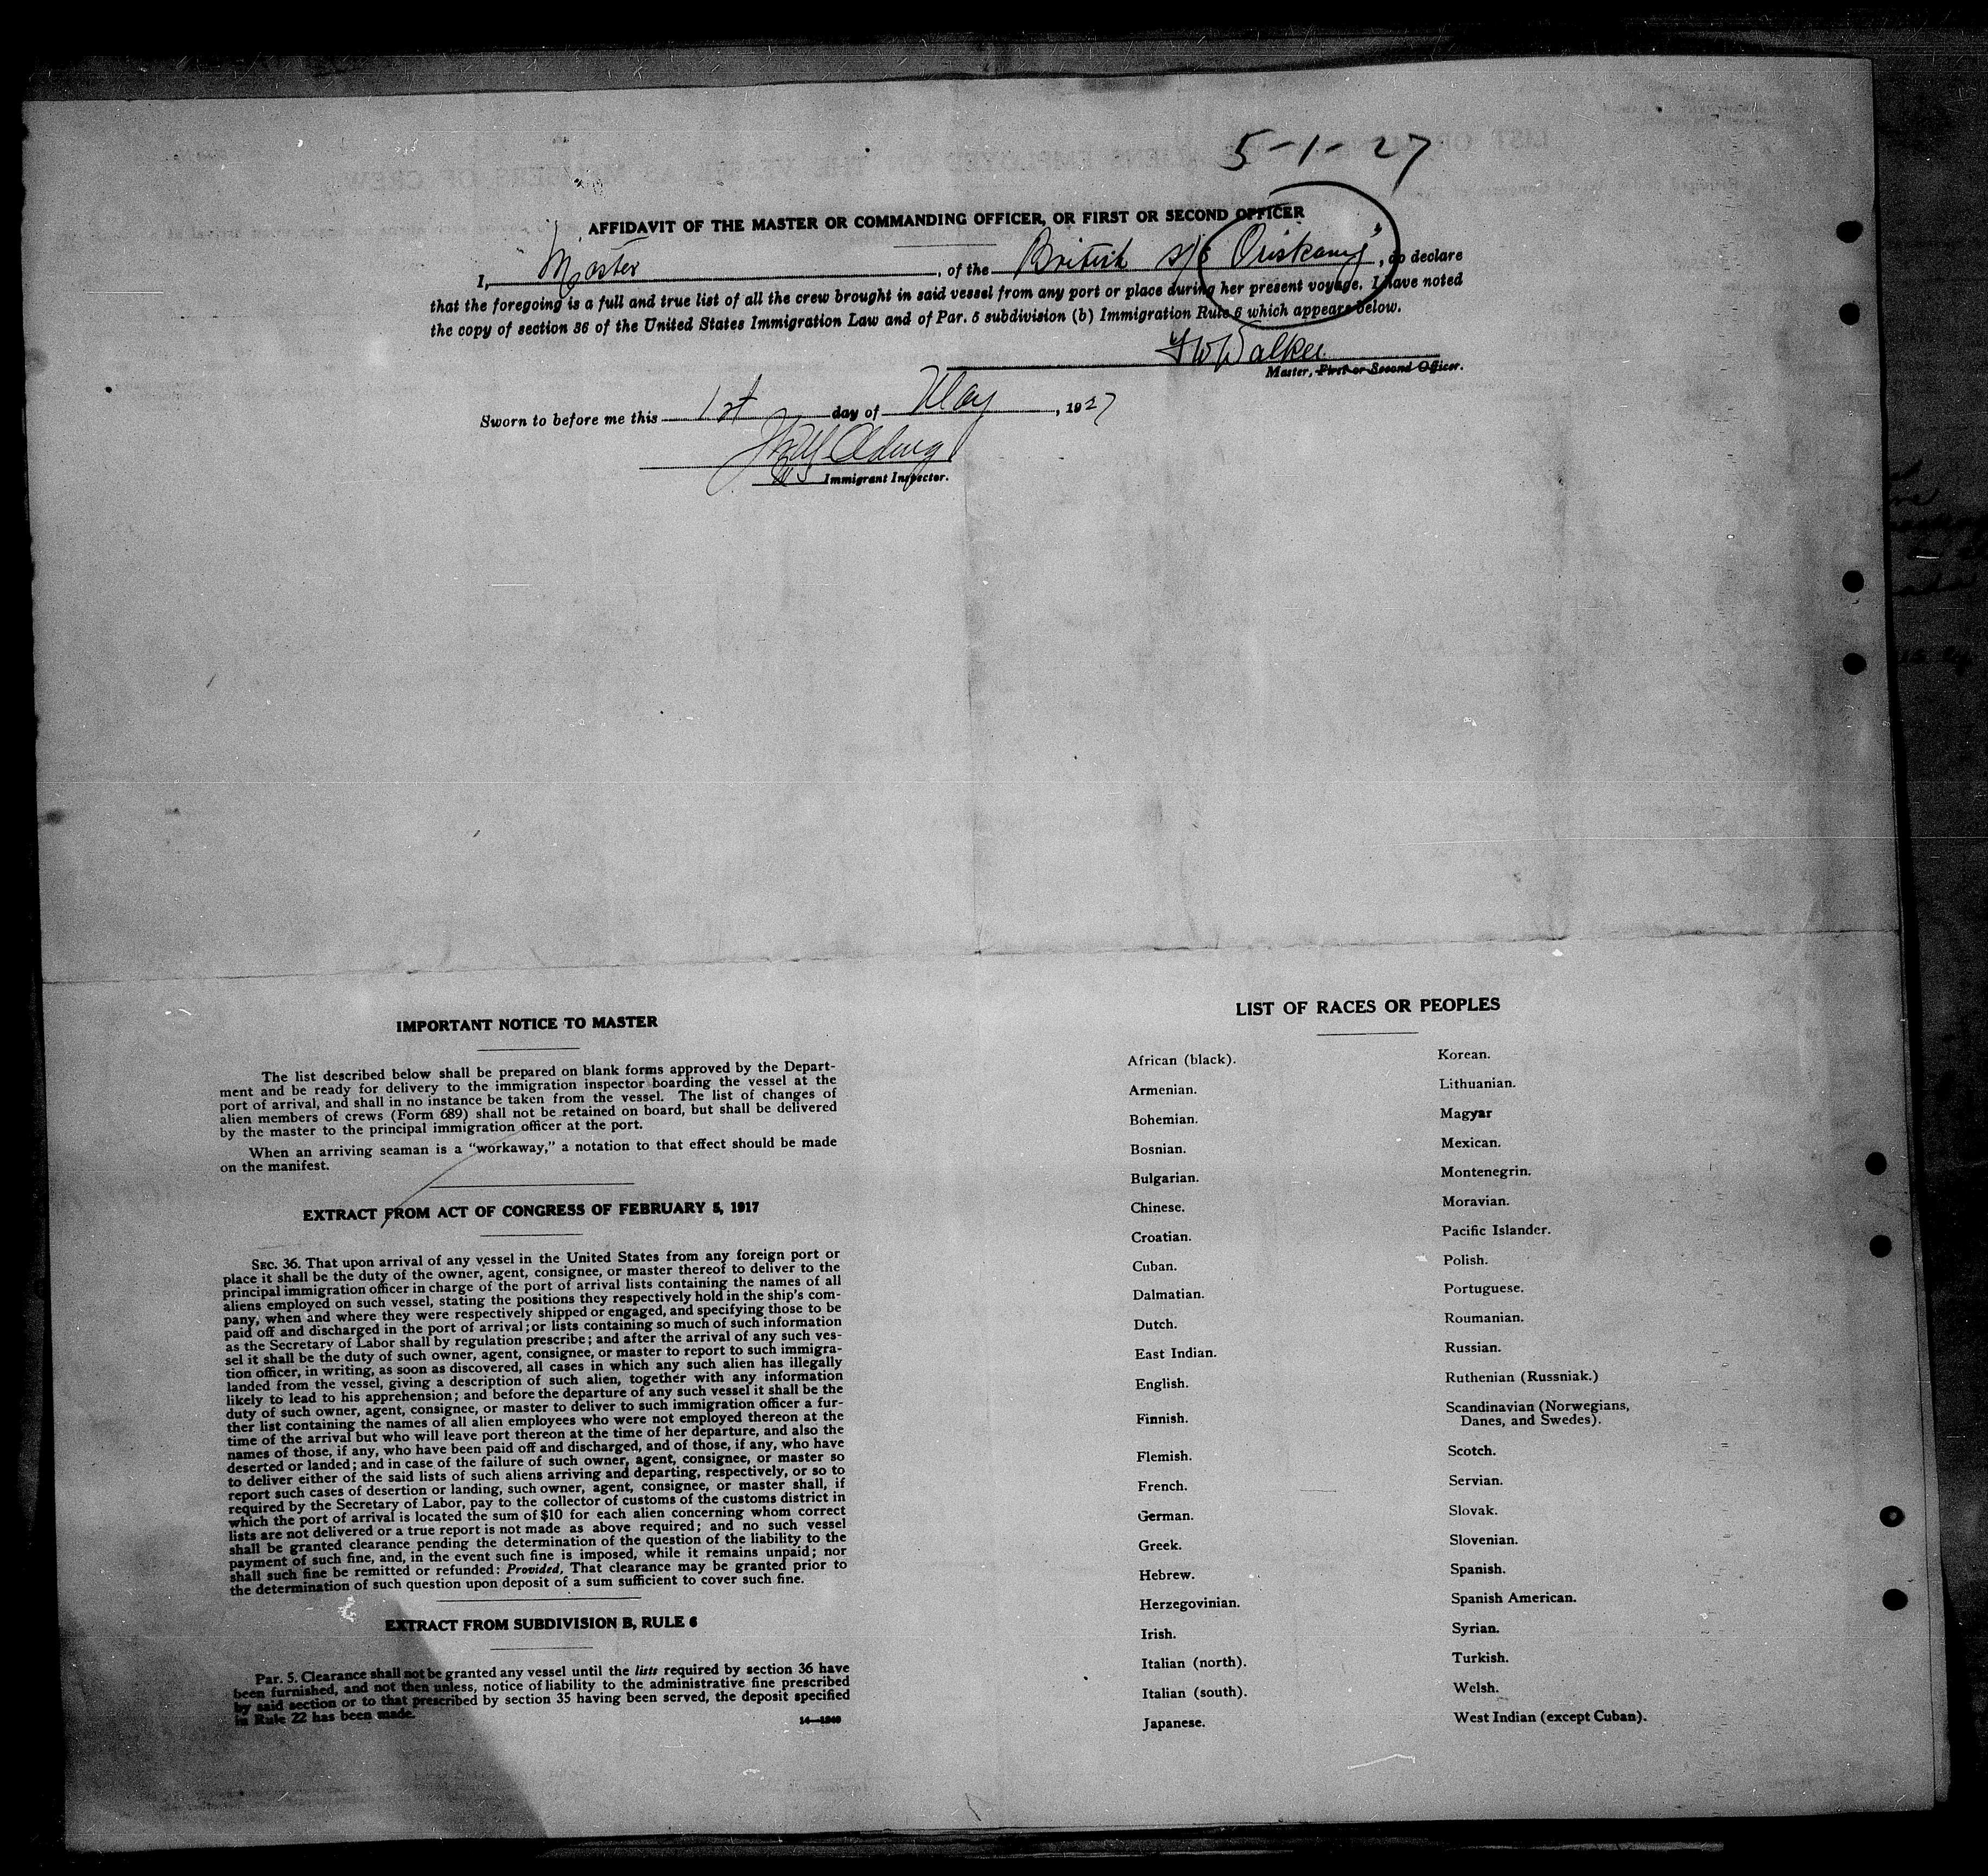 5-1-27
AFFIDAVIT OF THE MASTER OR COMMANDING OFFICER, OR FIRST OR SECOND OFFICER
I, Master, of the British s/s Oriskany", do declare
that the foregoing is a full and true list of all the crew brought in said vessel from any port or place during her present voyage. I have noted
the copy of section 36 of the United States Immigration Law and of Par. 5 subdivision (b) Immigration Rule 6 which appears below.
Walker
Master, First or Second Officer.
Sworn to before me this 1st day of May, 1927
Immigrant Inspector.
IMPORTANT NOTICE TO MASTER
The list described below shall be prepared on blank forms approved by the Depart-
ment and be ready for delivery to the immigration inspector boarding the vessel at the
port of arrival, and shall in no instance be taken from the vessel. The list of changes of
alien members of crews (Form 689) shall not be retained on board, but shall be delivered
by the master to the principal immigration officer at the port.
When an arriving seaman is a "workaway," a notation to that effect should be made
on the manifest.
EXTRACT FROM ACT OF CONGRESS OF FEBRUARY 5, 1917
SEC. 36. That upon arrival of any vessel in the United States from any foreign port or
place it shall be the duty of the owner, agent, consignee, or master thereof to deliver to the
principal immigration officer in charge of the port of arrival lists containing the names of all
aliens employed on such vessel, stating the positions they respectively hold in the ship's com-
pany, when and where they were respectively shipped or engaged, and specifying those to be
paid off and discharged in the port of arrival; or lists containing so much of such information
as the Secretary of Labor shall by regulation prescribe; and after the arrival of any such ves-
sel it shall be the duty of such owner, agent, consignee, or master to report to such immigra-
tion officer, in writing, as soon as discovered, all cases in which any such alien has illegally
landed from the vessel, giving a description of such alien, together with any information
likely to lead to his apprehension; and before the departure of any such vessel it shall be the
duty of such owner, agent, consignee, or master to deliver to such immigration officer a fur-
ther list containing the names of all alien employees who were not employed thereon at the
time of the arrival but who will leave port thereon at the time of her departure, and also the
names of those, if any, who have been paid off and discharged, and of those, if any, who have
deserted or landed; and in case of the failure of such owner, agent, consignee, or master so
to deliver either of the said lists of such aliens arriving and departing, respectively, or so to
report such cases of desertion or landing, such owner, agent, consignee, or master shall, if
required by the Secretary of Labor, pay to the collector of customs of the customs district in
which the port of arrival is located the sum of $10 for each alien concerning whom correct
lists are not delivered or a true report is not made as above required; and no such vessel
shall be granted clearance pending the determination of the question of the liability to the
payment of such fine, and, in the event such fine is imposed, while it remains unpaid; nor
shall such fine be remitted or refunded: Provided, That clearance may be granted prior to
the determination of such question upon deposit of a sum sufficient to cover such fine.
EXTRACT FROM SUBDIVISION B, RULE 6
Par. 5. Clearance shall not be granted any vessel until the lists required by section 36 have
been furnished, and not then unless, notice of liability to the administrative fine prescribed
by said section or to that prescribed by section 35 having been served, the deposit specified
in Rule 22 has been made.
14—1840
LIST OF RACES OR PEOPLES
African (black).
Armenian.
Bohemian.
Bosnian.
Bulgarian.
Chinese.
Croatian.
Cuban.
Dalmatian.
Dutch.
East Indian.
English.
Finnish.
Flemish.
French.
German.
Greek.
Hebrew.
Herzegovinian.
Irish.
Italian (north).
Italian (south).
Japanese.
Korean.
Lithuanian.
Magyar
Mexican.
Montenegrin.
Moravian.
Pacific Islander.
Polish.
Portuguese.
Roumanian.
Russian.
Ruthenian (Russniak.)
Scandinavian (Norwegians,
Danes, and Swedes).
Scotch.
Servian.
Slovak.
Slovenian.
Spanish.
Spanish American.
Syrian.
Turkish.
Welsh.
West Indian (except Cuban).